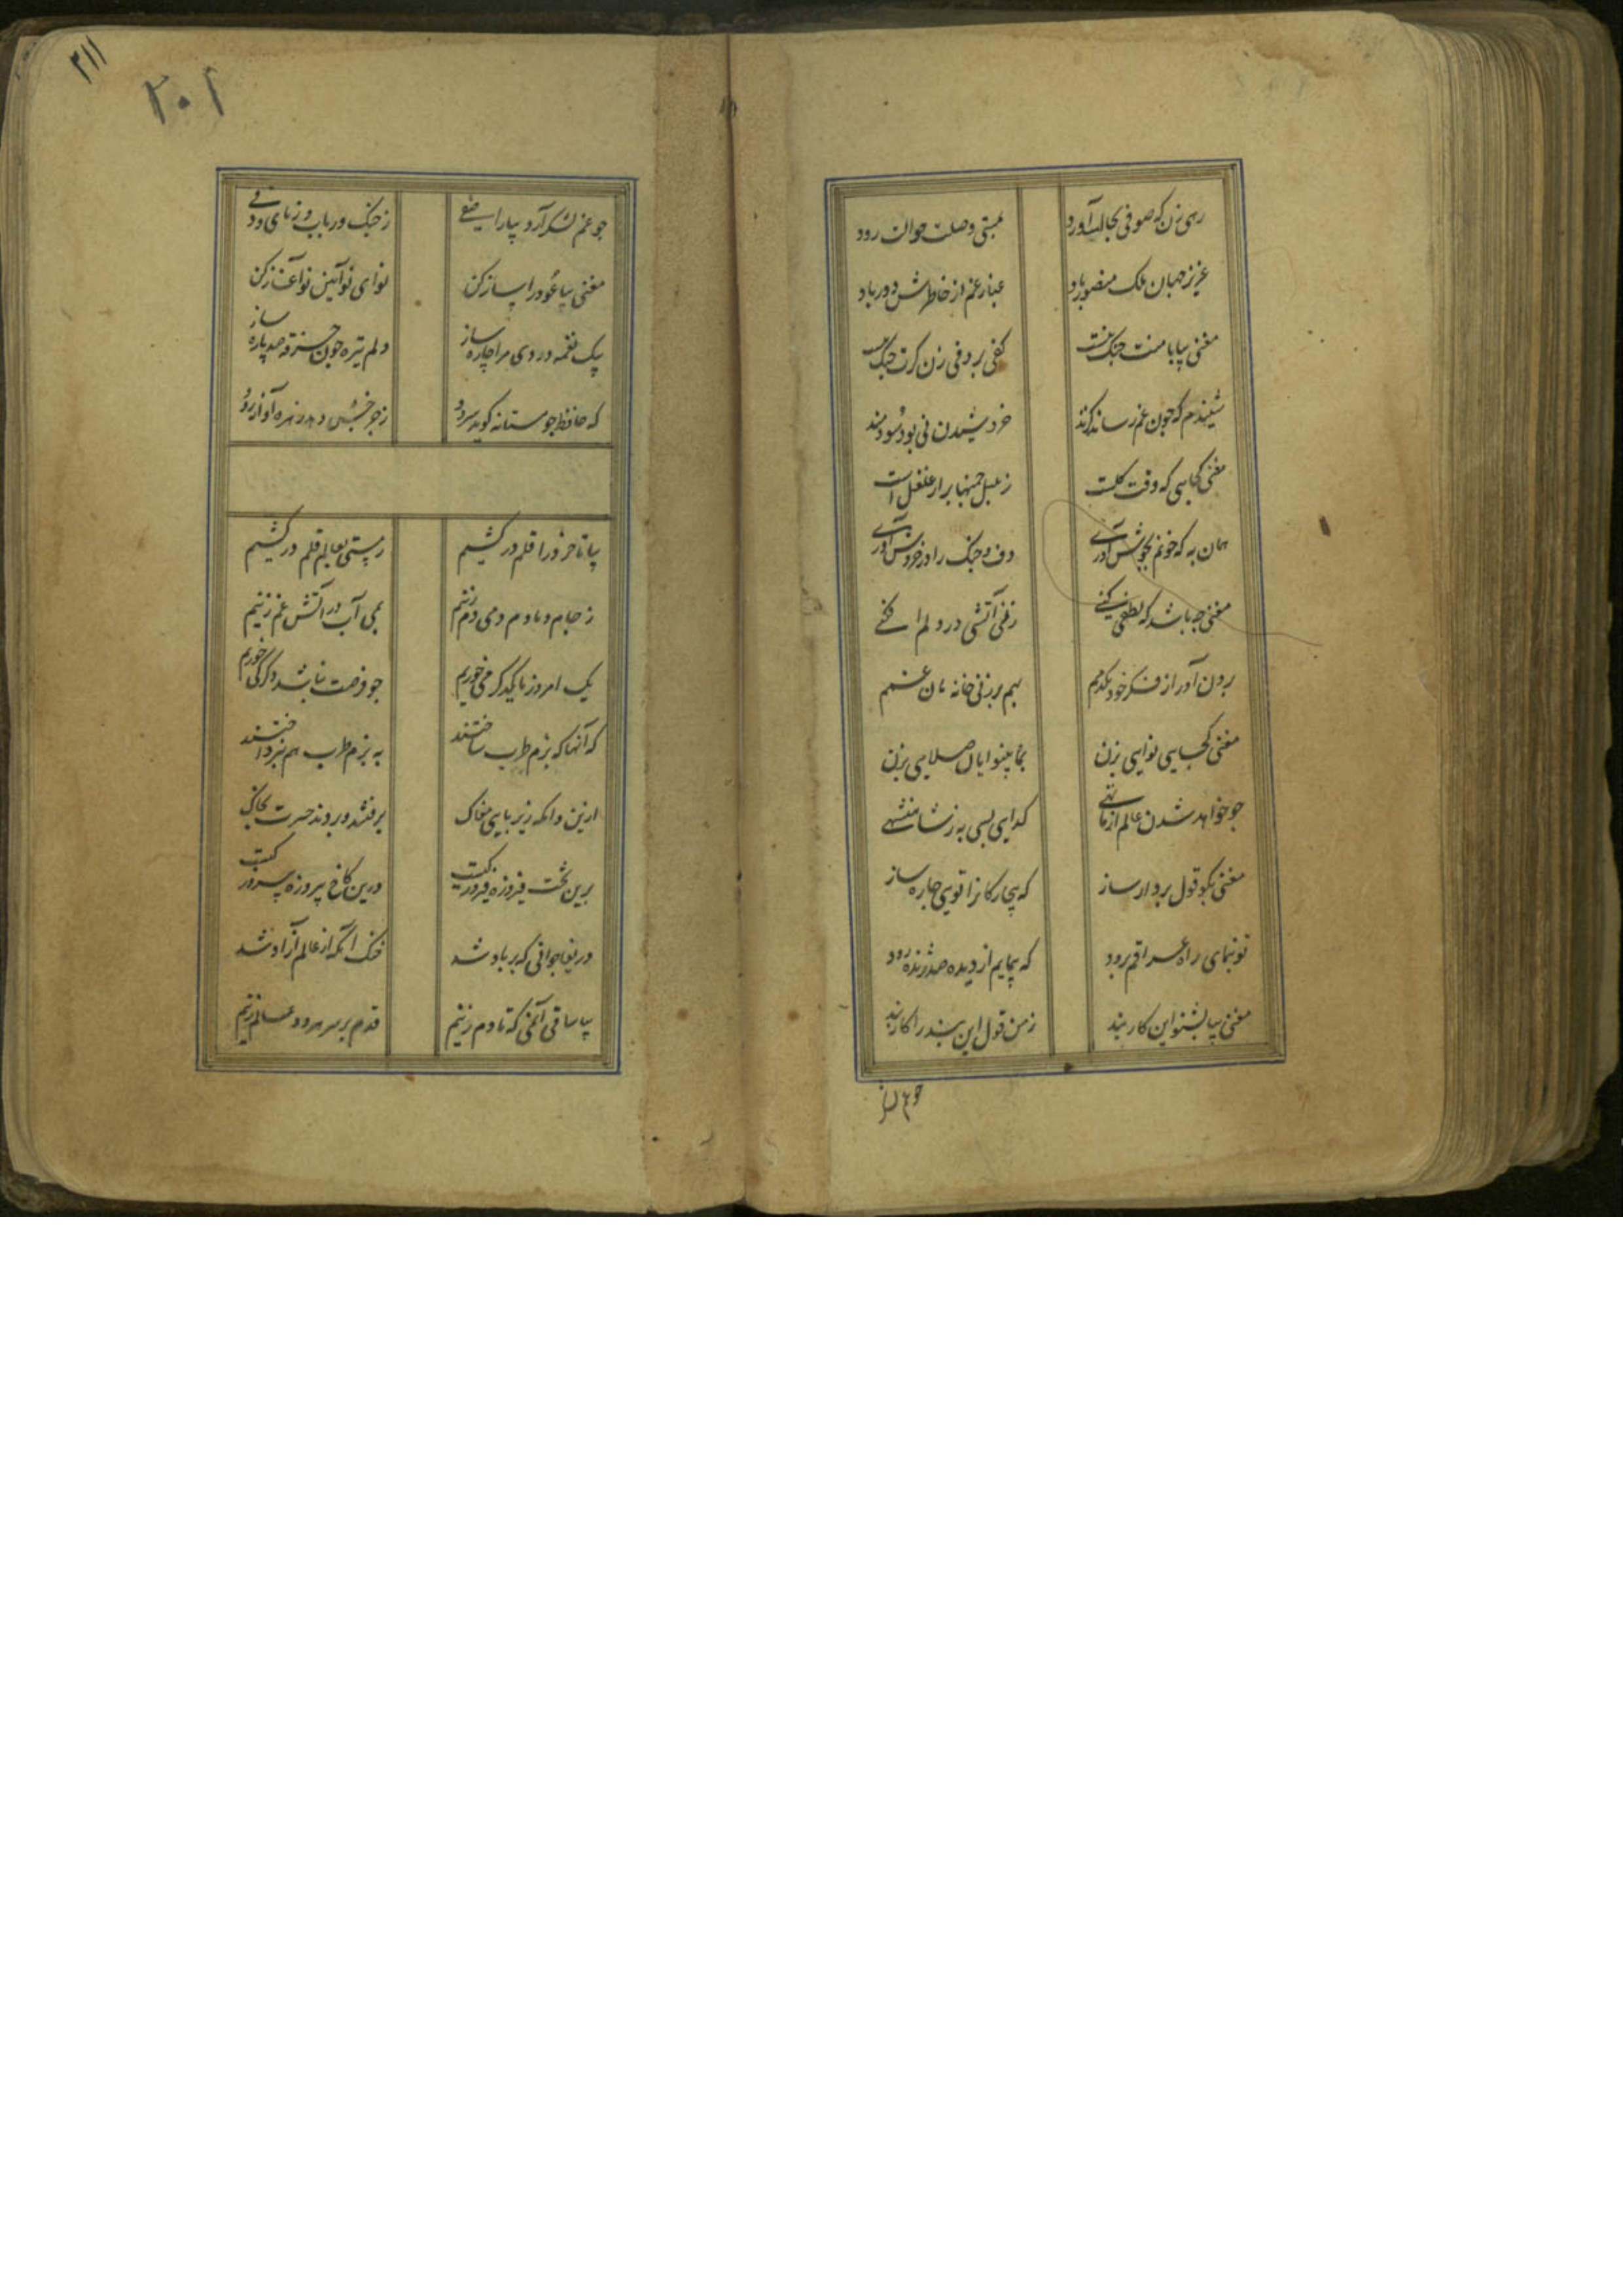 رهی زن که صوفی بحالت آورد
بمستی وصلت حوالت رود
عزیز جهان ملک منصور باد
غبار غم از خاطرش دور باد
مغنی بیا با منت جنک نیست
کفی بر دفی زن کرت جنک نیست
شنیدم که جون غم رساند کزند
خروشیدن نی بود سودمند
مغنی کجایی که وقت کلست
ز بلبل جمنها بر از غلغل است
همان به که خونم بجوش آوری
دف و جنک را در خروش آوری
مغنی جه باشد که لطفی کنی
زنی آتشی در دلم افکنی
برون آور از فکر خود یکدمم
بهم بر زنی خانه مان غمم
مغنی کجایی نوایی بزن
بما بینوایان صلایی بزن
جو خواهد شدن عالم از ما تهی
کدایی بسی به ز شاهنشهی
مغنی بکو قول بردار ساز
که بیچارکانرا تویی جاره ساز
تو بنمای راه عراقم برود
که بنمایم از دیده صد زنده رود
مغنی بیا بشنو این کار بند
ز من قول این بند را کار بند
جو غم
۲۱۱
۲۰۱
جو غم لشکر آرد بیارای صفی
ز جنک و رباب و ز نای و دفی
مغنی بیا عود را ساز کن
نوای نو آیین نو آغاز کن
بیک نغمه درد مرا چاره ساز
دلم تیره جون خرقه صد پاره ساز
که حافظ جو مستانه کوید سرود
ز جرخش دهد زهره آواز رود
بیا تا خرد را قلم در کشیم
ز مستی بعالم قلم در کشیم
ز جام دمادم دمی دم زنیم
بمی آب در آتش غم زنیم
یک امروز با یکدکر می خوریم
جو فرصت نباشد دکر کی خوریم
که آنها که بزم طرب ساختند
به بزم طرب هم نپرداختند
ازین دامکه زیر پای مغاک
برفتند و بردند حسرت بخاک
برین تخت فیروزه فیروز کیست
درین کاخ پیروزه پیروز کیست
دریغا جوانی که بر باد شد
خنک آنکه از عالم آزاد شد
بیا ساقی آن می که تا دم زنیم
قدم بر سر هر دو عالم زنیم